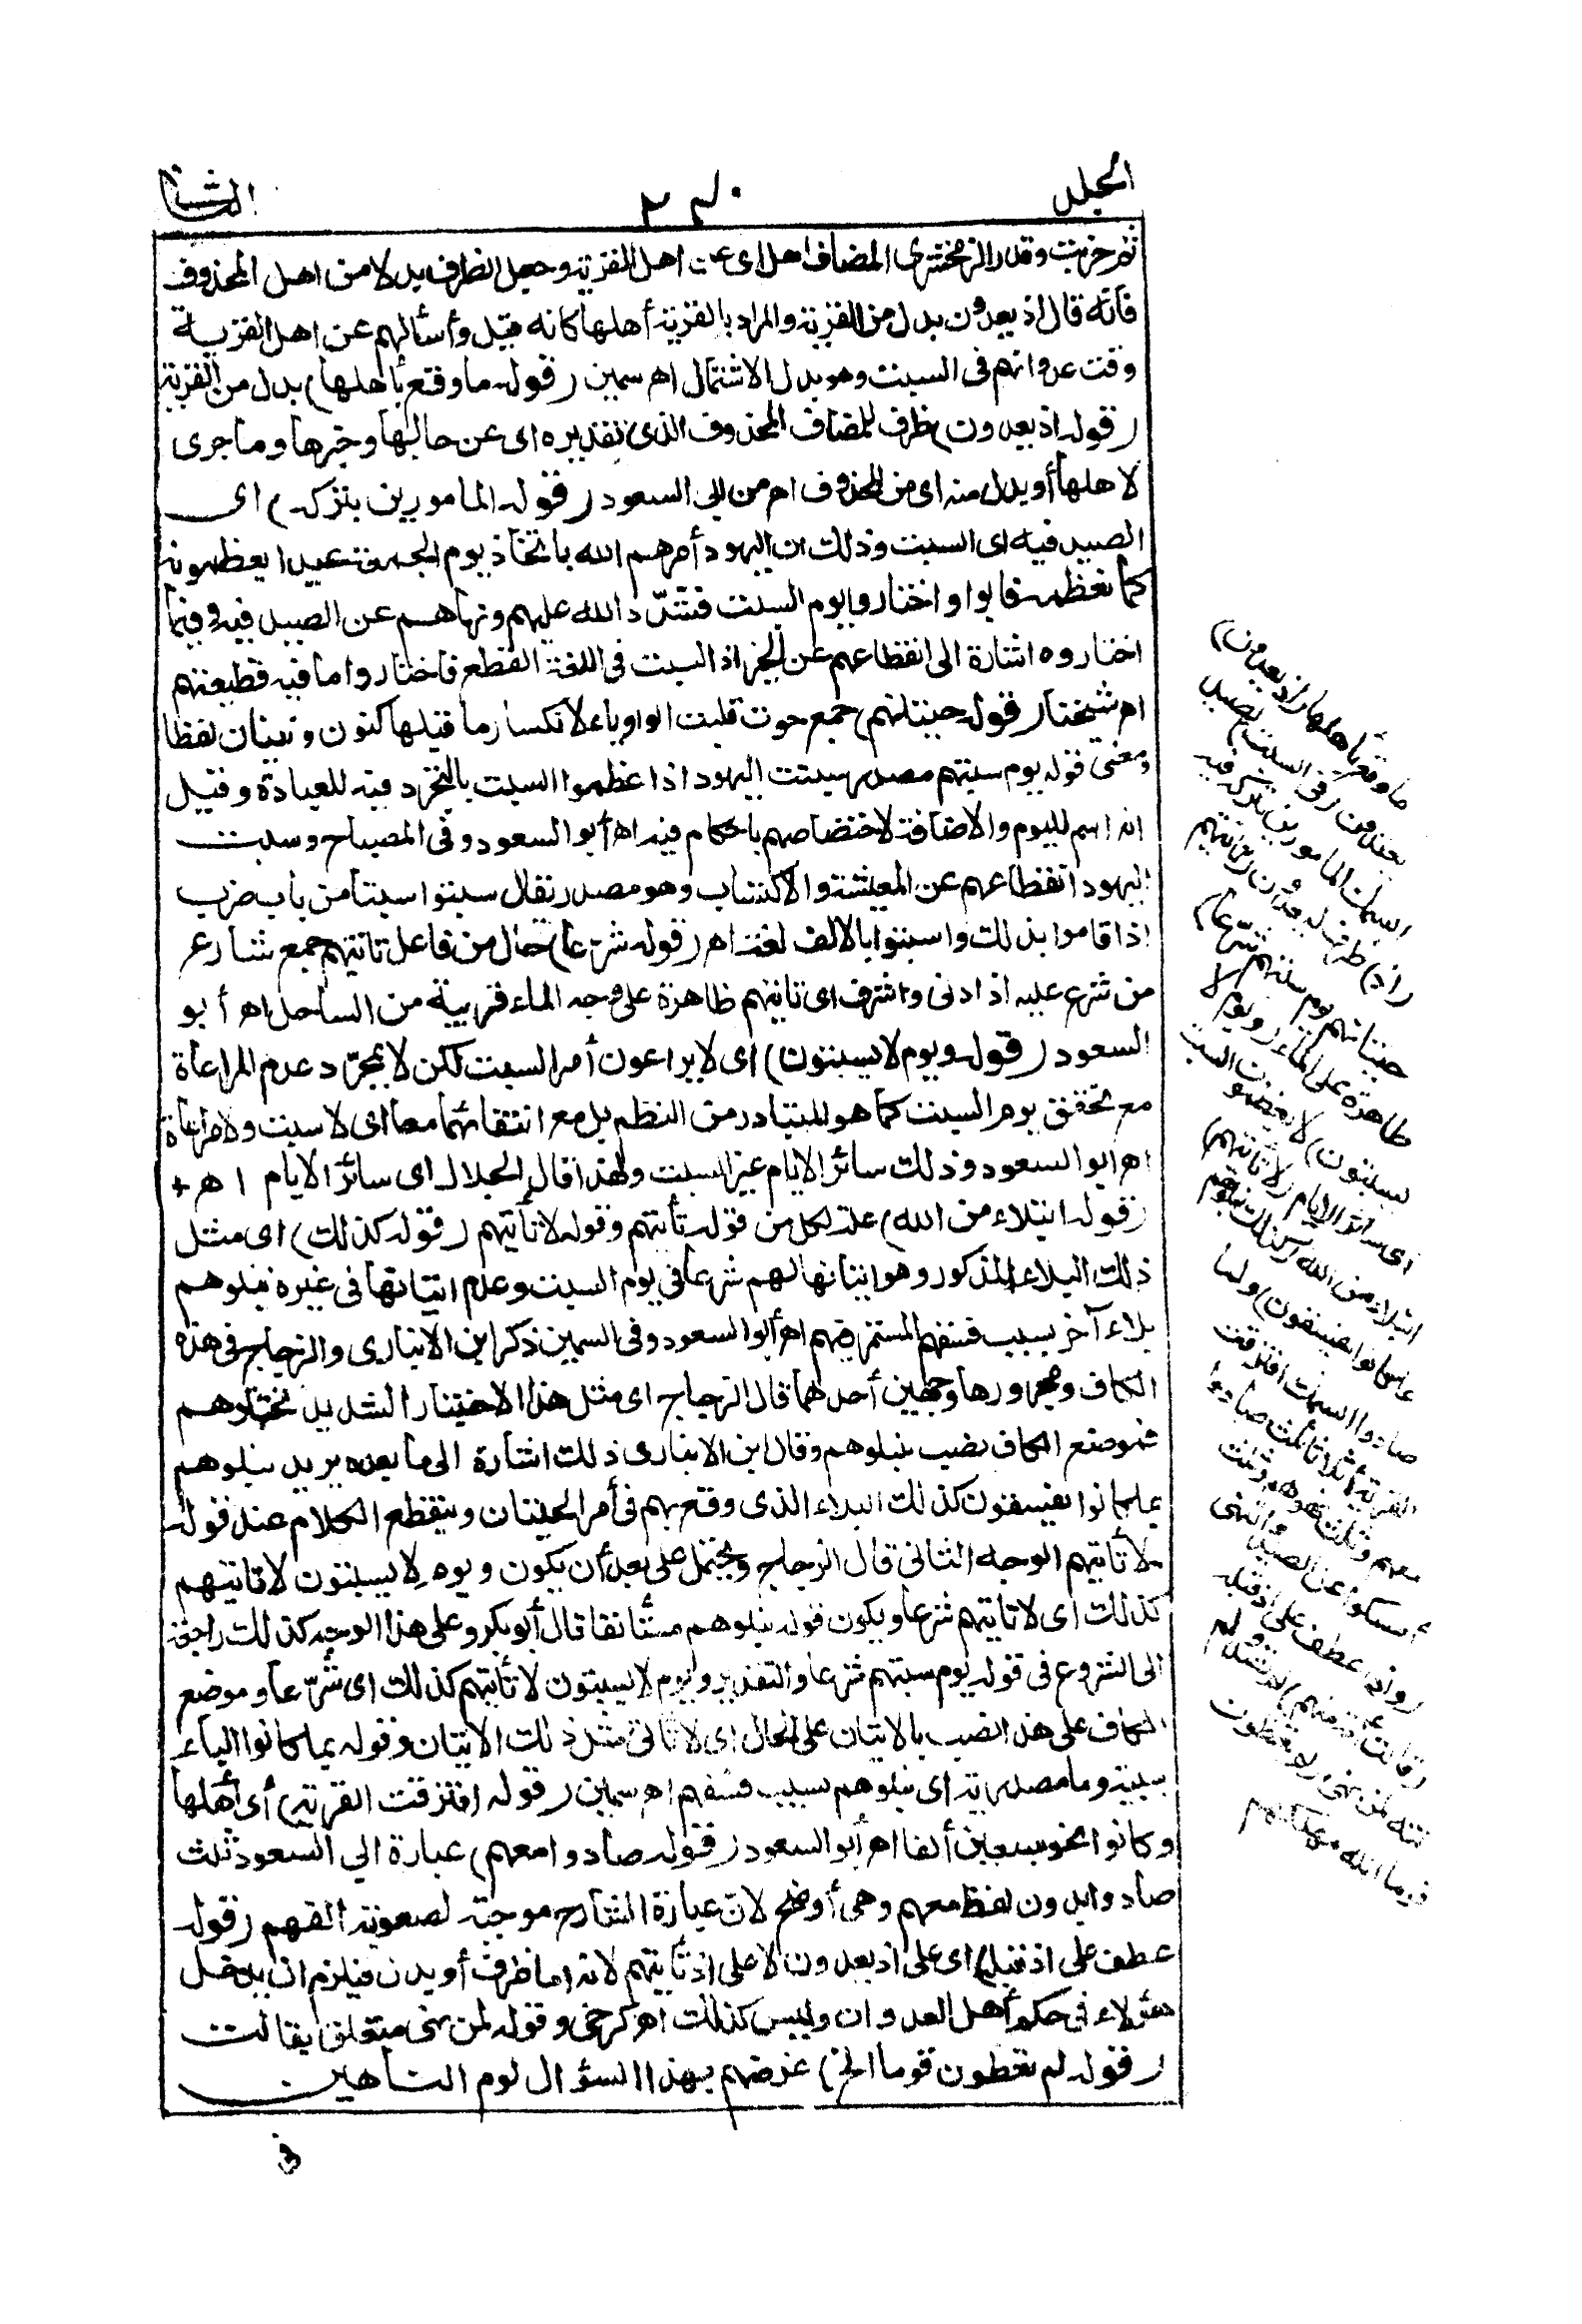 المجلد
٢٣٠
الثانى
ثم خربت وقدر الزمخشرى المضاف اهل اى عن اهل القرية وجعل الظرف بدلا من اهل المحذوف
فانه قال اذ يعدون بدل من القرية والمراد بالقرية أهلها كانه قيل وأسألهم عن اهل القرية
وقت عدوانهم فى السبت وهو بدل الاشتمال اهـ سمين (قوله ما وقع بأهلها) بدل من القرية
(قوله اذ يعدون) ظرف للمضاف المحذوف الذى تقديره اى عن حالها وخبرها وما جرى
لاهلها أو بدل منه اى من المحذوف اهـ من ابي السعود (قوله المامورين بتركه) اى
الصيد فيه اى السبت وذلك ان اليهود أمرهم الله باتخاذ يوم الجمعة عيدا يعظمونه
كما نعظمه فابوا واختاروا يوم السبت فشدّد الله عليهم ونهاهم عن الصيد فيه وفيما
اختاروه اشارة الى انقطاعهم عن الخير اذ السبت فى اللغة القطع فاختاروا ما فيه قطيعتهم
اهـ شيخنا (قوله حيتانهم) جمع حوت قلبت الواو ياء لانكسار ما قبلها كنون ونينان لفظا
ومعنى قوله يوم سبتهم مصدر سبتت اليهود اذا عظموا السبت بالتجرد فيه للعبادة وقيل
انه اسم لليوم والاضافة لاختصاصهم باحكام فيه اهـ أبو السعود وفى المصباح وسبت
اليهود انقطاعهم عن المعيشة والاكتساب وهو مصدر يقال سبتوا سبتا من باب ضرب
اذا قاموا بذلك واسبتوا بالالف لغة اهـ (قوله شرّعا) حال من فاعل تاتيهم جمع شارع
من شرع عليه اذا دنى واشرف اى تاتيهم ظاهرة على وجه الماء قريبة من الساحل اهـ أبو
السعود (قوله ويوم لا يسبتون) اى لا يراعون أمر السبت لكن لا بمجرّد عدم المراعاة
مع تحقق يوم السبت كما هو المتبادر من النظم بل مع انتفائهما معا اى لا سبت ولا مراعاة
اهـ ابو السعود وذلك سائر الايام غير السبت ولهذا قال الجلال اى سائر الايام اهـ +
(قوله ابتلاء من الله) علة لكل من قوله تأتيهم وقوله لا تأتيهم (قوله كذلك) اى مثل
ذلك البلاء المذكور وهو اتيانها لهم شرعا فى يوم السبت وعدم اتيانها فى غيره نبلوهم
بلاء آخر بسبب فسقهم المستمر منهم اهـ أبو السعود وفى السمين ذكر ابن الانبارى والزجاج فى هذه
الكاف ومجرورها وجهين أحدهما قال الزجاج اى مثل هذا الاختبار الشديد نختبرهم
فموضع الكاف نصب بنبلوهم وقال ابن الانبارى ذلك اشارة الى ما بعده يريد نبلوهم
بما كانوا يفسقون كذلك البلاء الذى وقع بهم فى أمر الحيتان وينقطع الكلام عند قوله
لا تأتيهم الوجه الثانى قال الزجاج ويحتمل على بعد أن يكون ويوم لا يسبتون لا تاتيهم
كذلك اى لا تاتيهم شرعا ويكون قوله نبلوهم مستأنفا قال أبو بكر وعلى هذا الوجه كذلك راجعة
الى الشروع فى قوله يوم سبتهم شرعا والتقدير ويوم لا يسبتون لا تأتيهم كذلك اى شرّعا وموضع
الكاف على هذا نصب بالاتيان على الحال اى لا تأتى مثل ذلك الاتيان وقوله بما كانوا الباء
سببية وما مصدرية اى نبلوهم بسبب فسقهم اهـ سمين (قوله افترقت القرية) أى أهلها
وكانوا نحو سبعين ألفا اهـ أبو السعود (قوله صادوا معهم) عبارة ابي السعود ثلث
صادوا بدون لفظ معهم وهى أوضح لان عبارة الشارح موجبة لصعوبة الفهم (قوله
عطف على اذ قبله) اى على اذ يعدون لا على اذ تأتيهم لانه اما ظرف أو بدل فيلزم ان يدخل
هؤلاء فى حكم أهل العدوان وليس كذلك اهـ كرخى وقوله لمن نهى متعلق بقالت
(قوله لم تعظون قوما الخ) غرضهم بهذا السؤال لوم الناهين
فى
ما وقع بأهلها (اذ يعدون)
يعتدون (فى السبت) بصيد
السمك المامورين بتركه فيه
(اذ) ظرف ليعدون (تاتيهم
حيتانهم يوم سبتهم شرّعا)
ظاهرة على الماء (ويوم لا
يسبتون) لا يعظمون السبت
اى سائر الايام (لا تاتيهم)
ابتلاء من الله (كذلك نبلوهم
بما كانوا يفسقون) ولما
صادوا السمك افترقت
القرية أثلاثا ثلث صادوا
معهم وثلث نهوهم وثلث
أمسكوا عن الصيد والنهى
(واذ) عطف على اذ قبله
(قالت أمة منهم) لم تصد ولم
تنه لمن نهى (لم تعظون
قوما الله مهلكهم